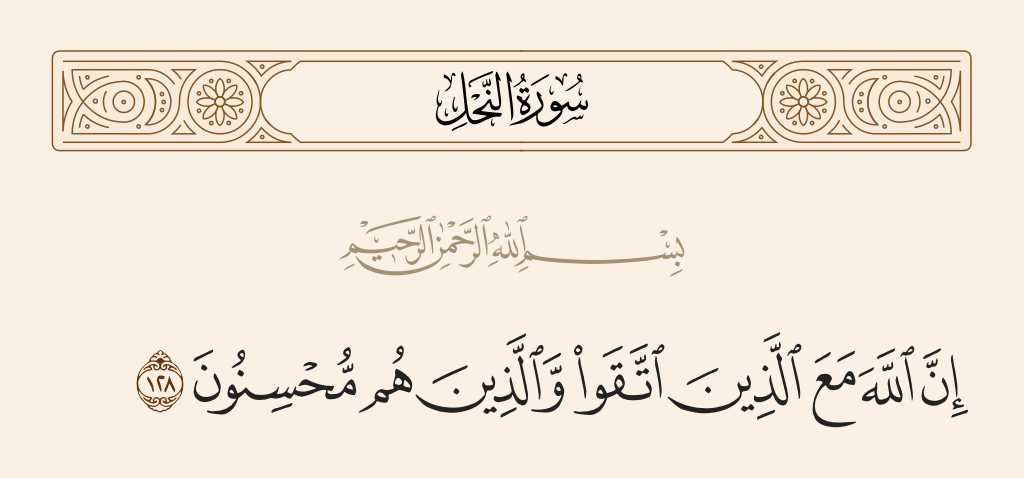 سُورَةُ النَّحْلِ
بِسْمِ ٱللَّهِ ٱلرَّحْمَٰنِ ٱلرَّحِيمِ
إِنَّ ٱللَّهَ مَعَ ٱلَّذِينَ ٱتَّقَوا۟ وَّٱلَّذِينَ هُم مُّحْسِنُونَ ١٢٨